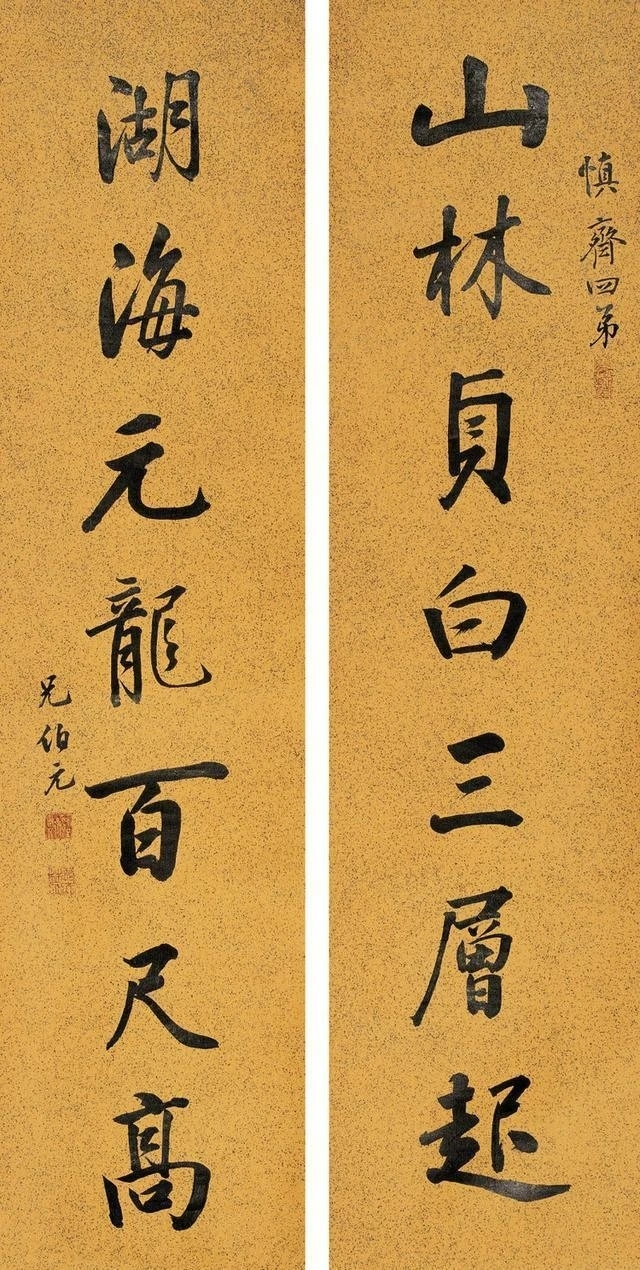 慎齋四弟
山林貞白三層起
湖海元龍百尺高
兄伯元